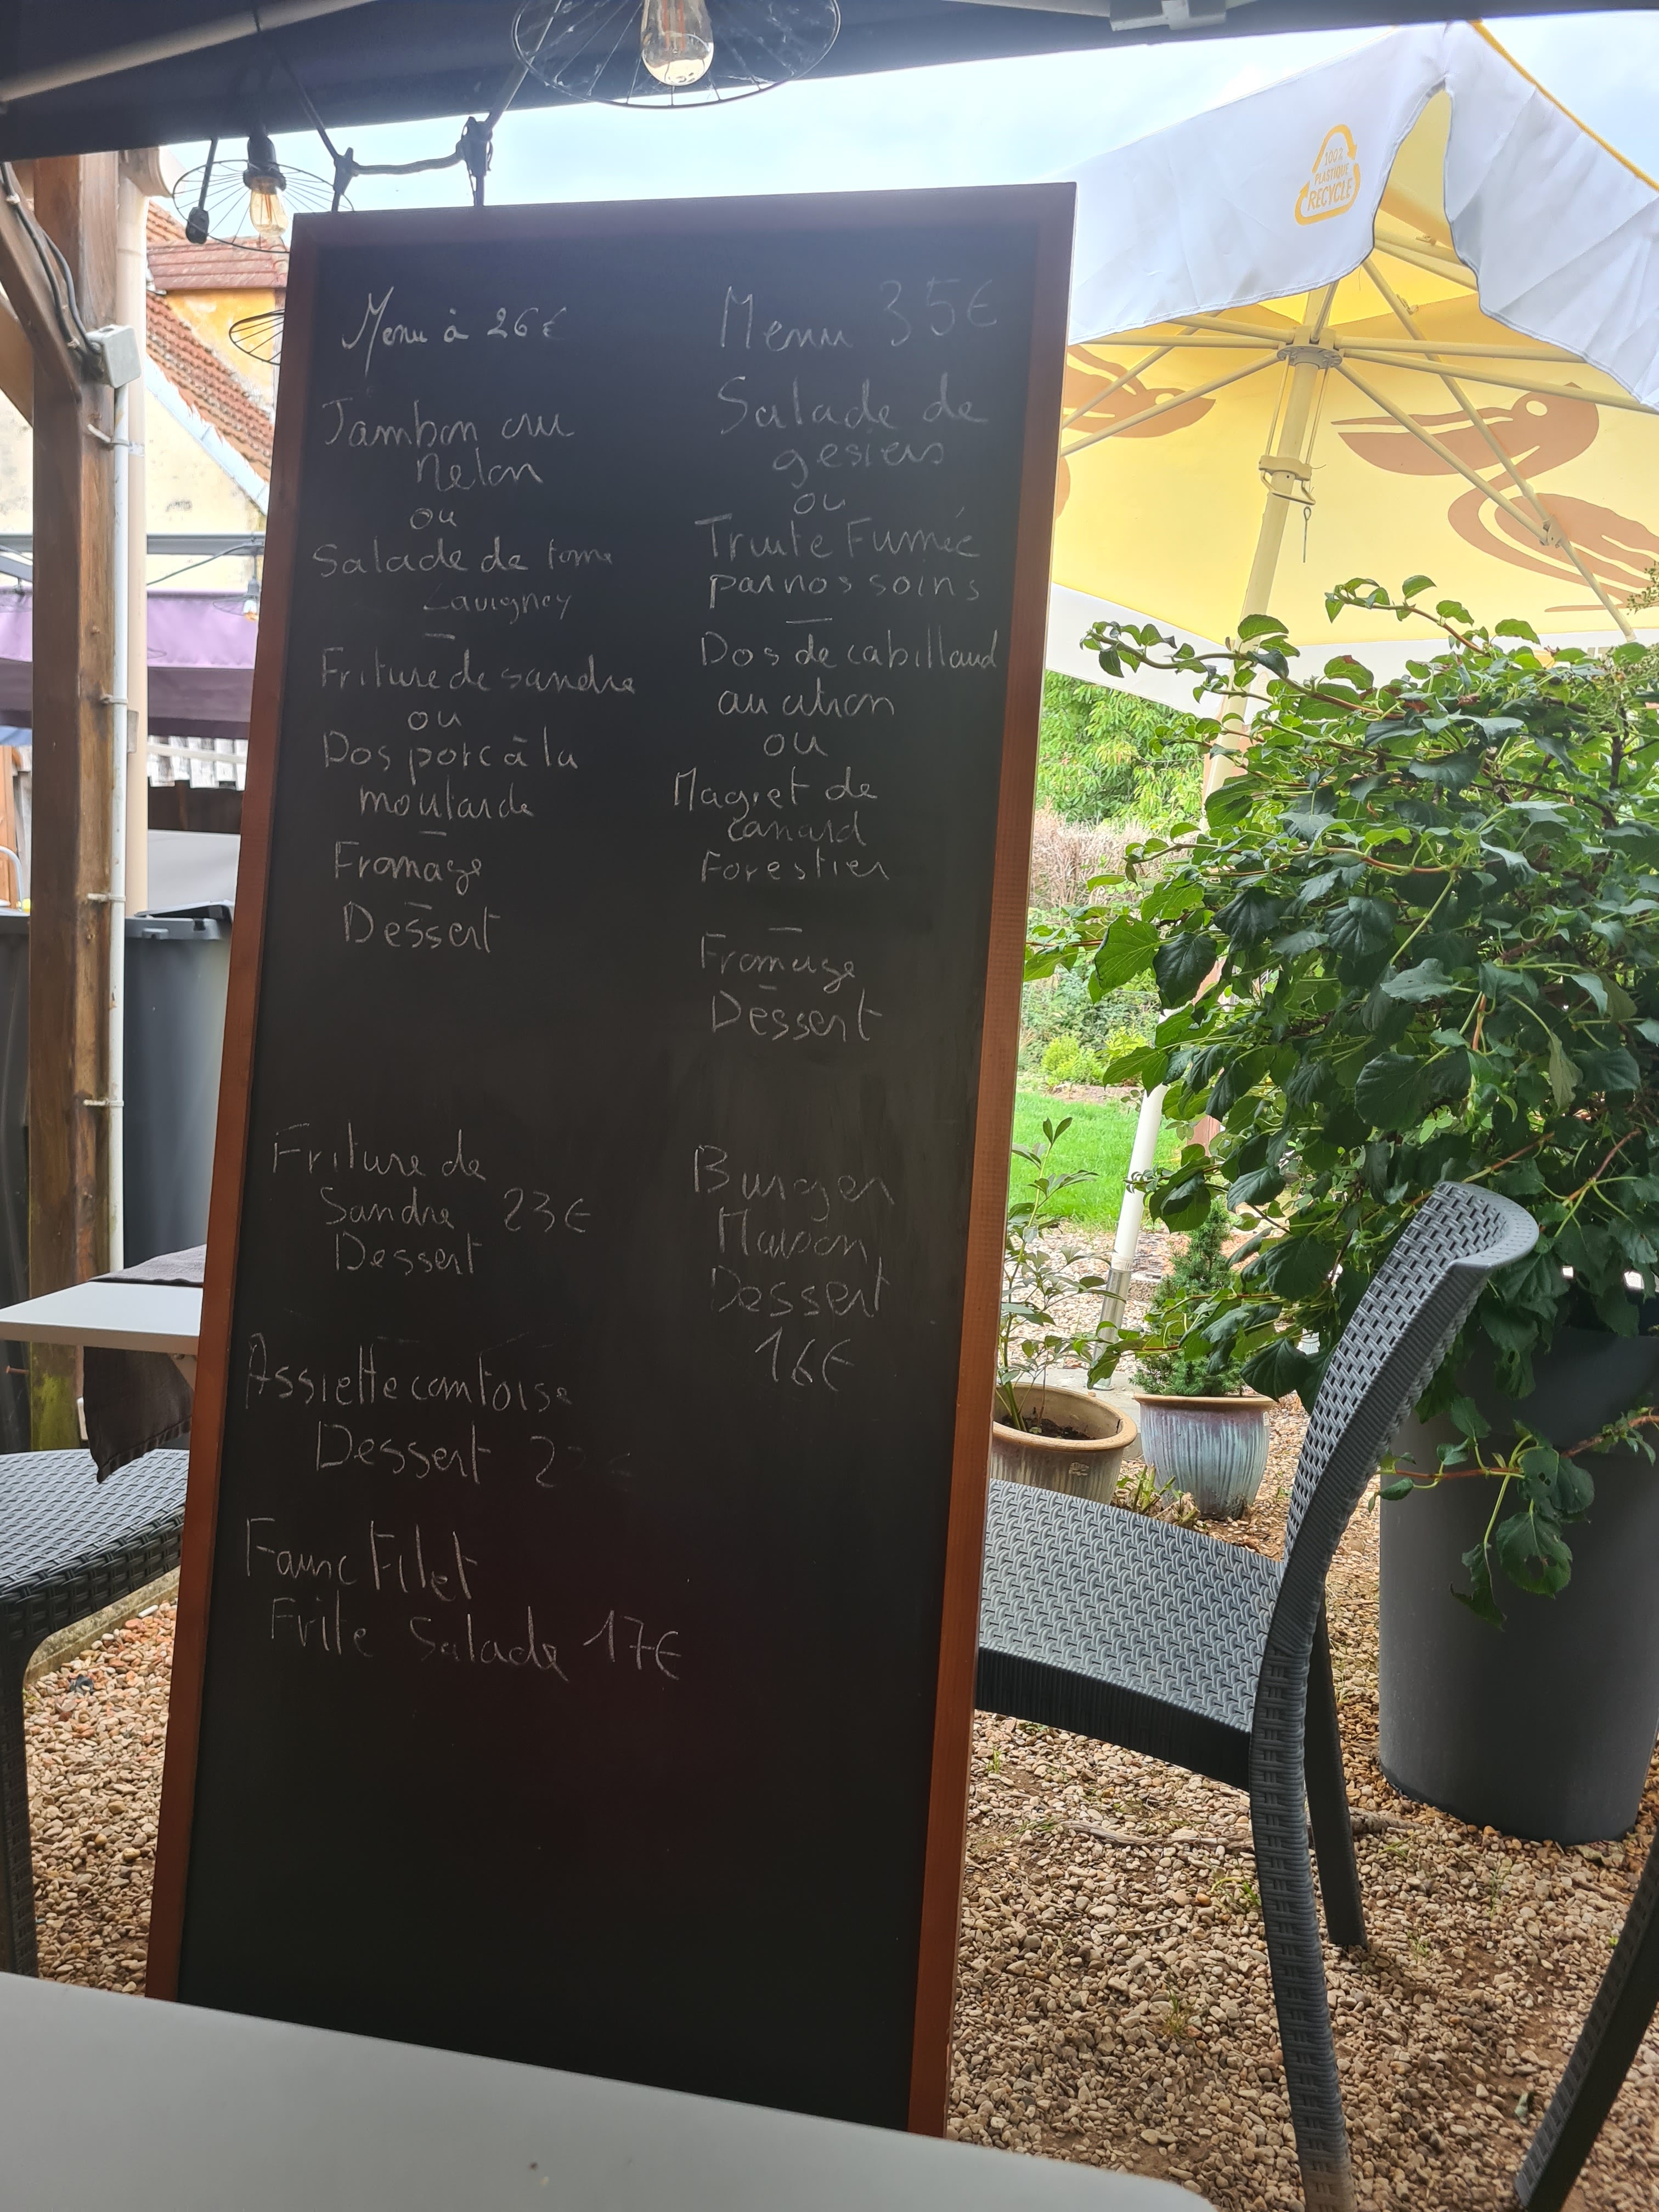 Menu à 26€
Jambon cru
Melon
ou
Salade de tome
Lavigney
Friture de sandre
ou
Dos porc à la
moutarde
Fromage
Dessert
Friture de
Sandre 23€
Dessert
Assiette comtoise
Dessert
Faux Filet
Frite Salade 17€
Menu 35€
Salade de
gesiers
ou
Truite Fumée
par nos soins
Dos de cabillaud
au citron
ou
Magret de
canard
Forestier
Fromage
Dessert
Burger
Maison
Dessert
16€
100%
PLASTIQUE
RECYCLÉ